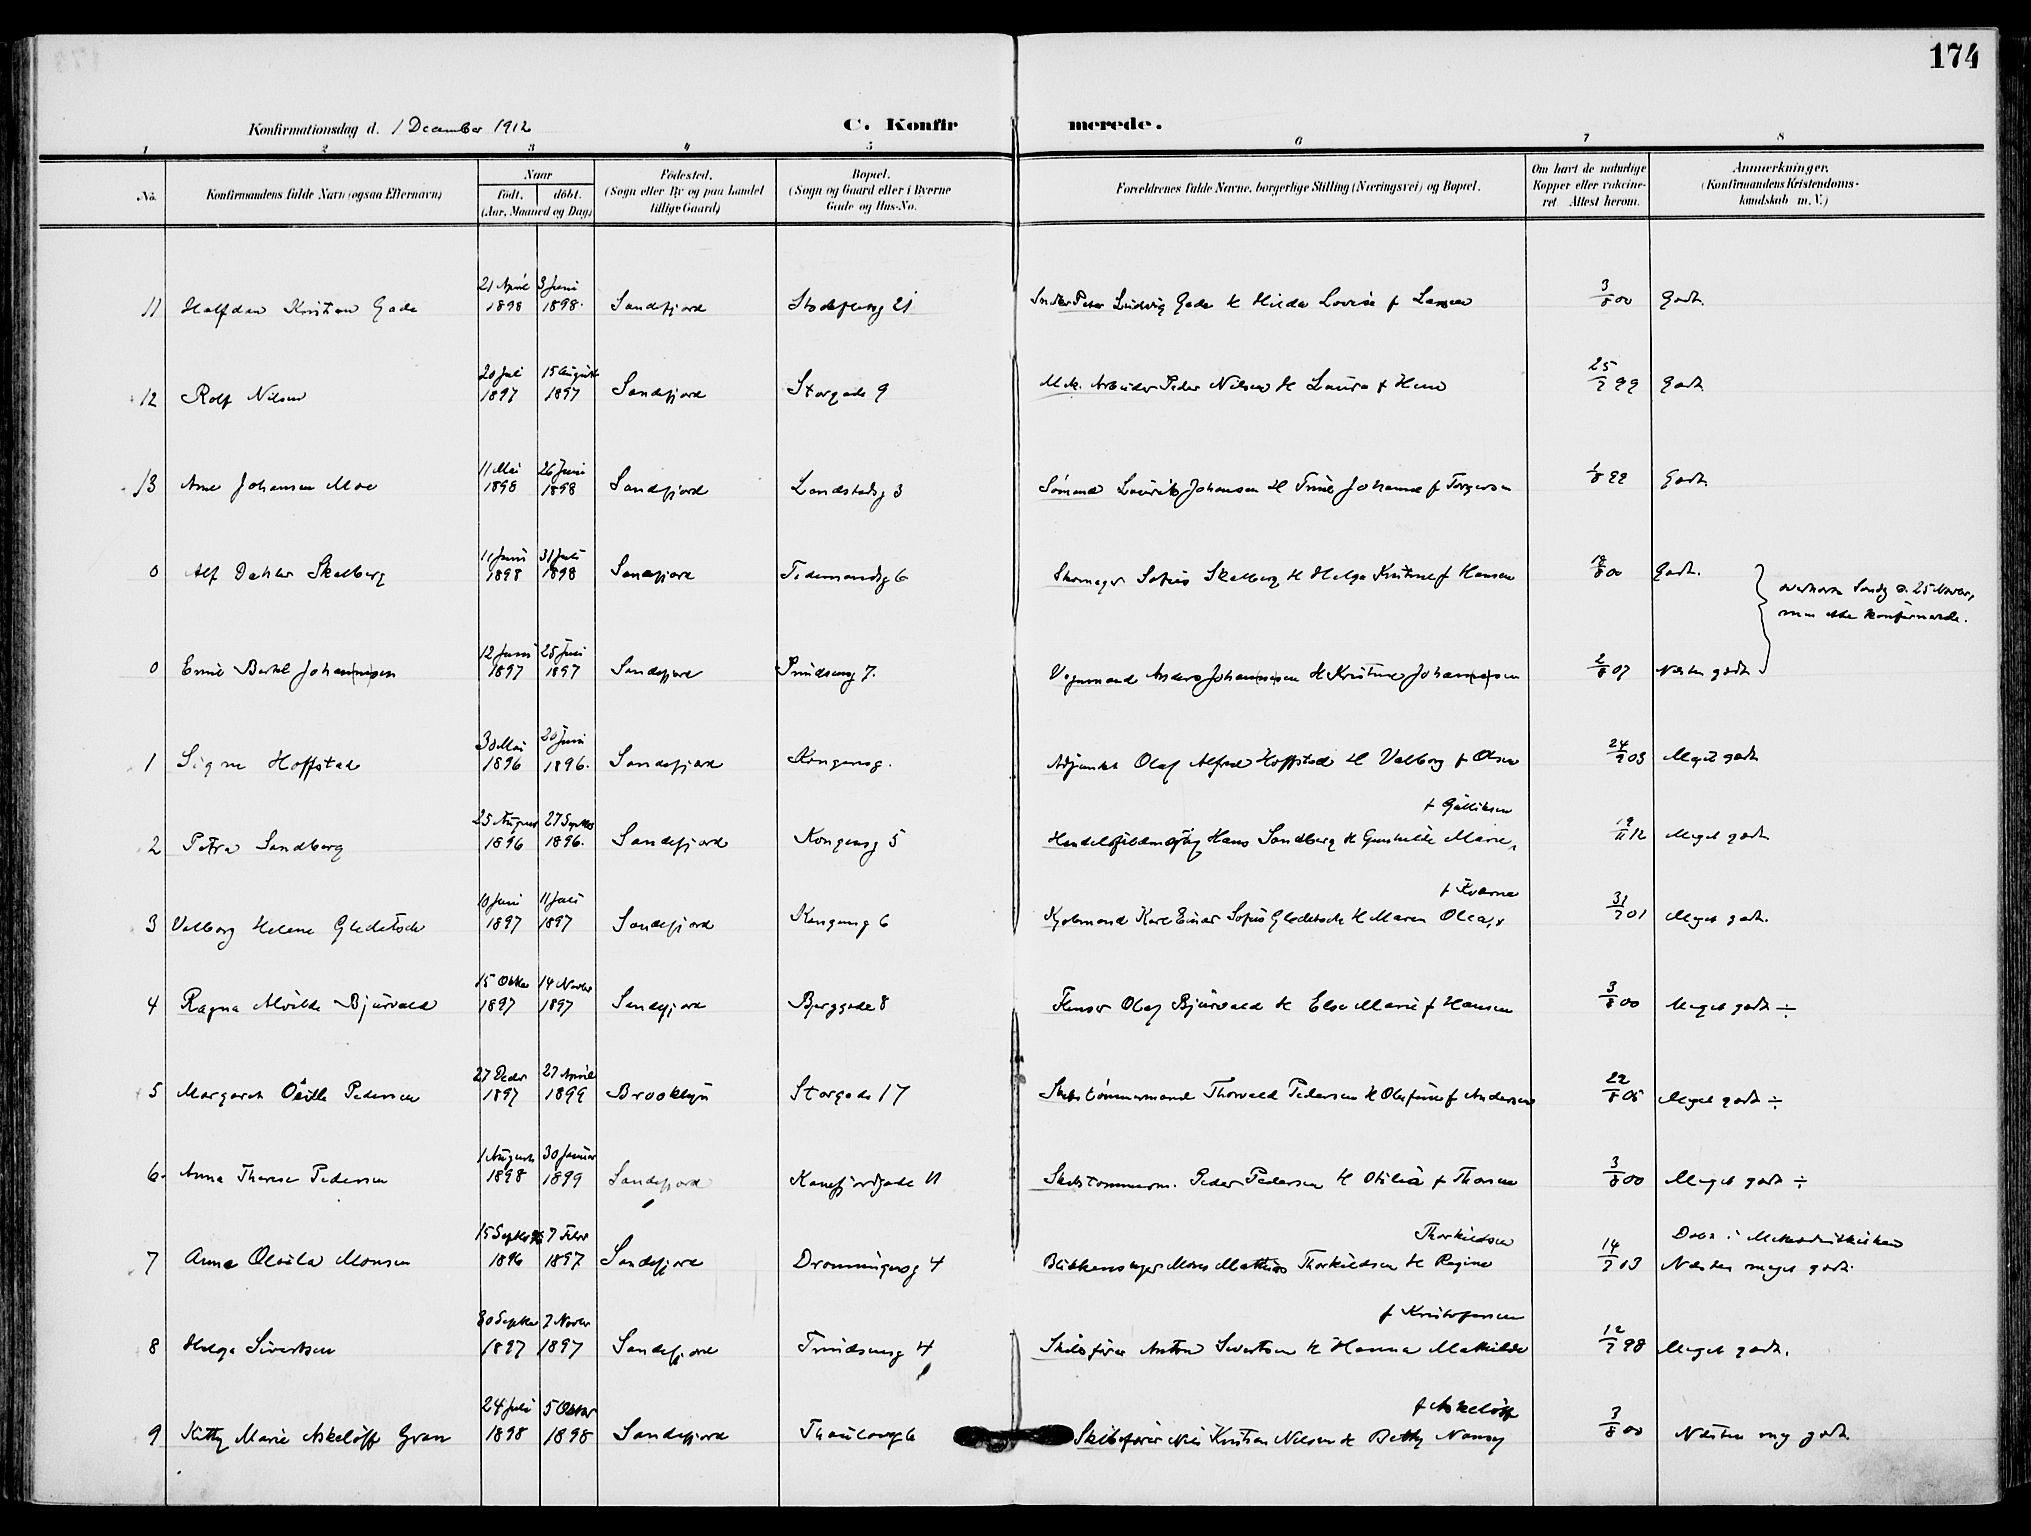 174
Konfirmationsdag d. 1 December 1912
C. Konfirmerede.
1 2 3 4 5 6 7 8
No.
Konfirmandens fulde Navn (ogsaa Efternavn)
Naar
født. døbt.
(Aar, Maaned og Dag)
Fødested.
(Sogn eller By og paa Landet
tillige Gaard)
Bopæl.
(Sogn og Gaard eller i Byerne
Gade og Hus-No.
Forældrenes fulde Navne, borgerlige Stilling (Næringsvei) og Bopæl.
Om havt de naturlige
Kopper eller vaksine-
ret Attest herom.
Anmerkninger.
(Konfirmandens Kristendoms-
kundskab m. V.)
21 April 3 Juni
11 Halfdan Kristian Gade 1898 1898. Sandefjord 21 Peter Ludvig Gade & Hilda Lovise f Larsen 3/8 00 Godt.
20 Juli 15 August
12 Rolf Nilsen 1897 1897 Sandefjord Storgade 9 Mek. Arbeider Peder Nilsen & Laura f Hem 25/7 99 Godt
11 Mai 26 Juni
13 Arne Johansen Moe 1898 1898 Sandefjord Landstadsg 3 Sømand Laurits Johansen & Trine Johanne f Torgersen 1/8 99 Godt.
11 Juni 31 Juli
0 Alf Dehler Skalberg 1898 1898 Sandefjord Tidemandsg 6 Skomager Sofus Skalberg & Helga Kristine f Hansen /8 00 Godt.
overhørte Søndg d. 25 Novbr,
men ikke konfirmerede.
12 Juni 25 Juli
0 Emil Bertel Johannisen 1897 1897 Sandefjord Prindsensg 7. Vognmand Anders Johannesen & Kristine Johannesen 2/8 07 Næsten godt
30 Mai 20 Juni
1 Signe Hoffstad 1896 1896. Sandefjord Kongensg. Adjunkt Olaf Alfred Hoffstad & Valborg f Olsen 24/9 03 Meget godt
25 August 27 Septbr f Gulliksen
2 Petra Sandberg 1896 1896. Sandefjord Kongensg 5 Hans Sandberg & Gunhilde Marie, 19/11 12 Meget godt
10 Juni 11 Juli f Kværne
3 Valborg Helene Gleditsch 1897 1897 Sandefjord Kongensg 6 Kjøbmand Karl Einar Sofus Gleditsch & Maren Olea, 31/7 01 Meget godt.
15 Oktbr 14 Novbr
4 Ragna Alvilde Bjurvald 1897 1897 Sandefjord Bjerggade 8 Flenser Olaf Bjurvald & Else Marie f Hansen 3/8 00 Meget godt ÷
27 Decbr 27 April
5 Margareth Otilie Pedersen 1897 1899 Brooklyn Storgade 17 Skibstømmermand Thorvald Pedersen & Olufine f Andersen 22/8 05 Meget godt ÷
1 August 30 Januar
6. Anna Therese Pedersen 1898 1899 Sandefjord Kamfjordgade 11 Skibstømmerm. Peder Pedersen & Otilia f Thorsen 3/8 00 Meget godt ÷
15 Septbr 96 7 Febr Thorkildsen Døbt i Methodistkirken
7 Anna Olavla Monsen 1896 1897 Sandefjord Dronningensg 4 Blikkenslager Mons Mathias Thorkildsen & Regine 14/7 03 Næsten meget godt.
30 Septbr 7 Novbr f Kristofersen
8 Helga Sivertsen 1897 1897 Sandefjord Prindsensg 4 Skibsfører Anton Sivertsen & Hanna Mathilde 12/7 98 Meget godt.
24 Juli 5 Oktbr f Askeløff
9 Kitty Marie Askeløff Gran 1898 1898 Sandefjord Thaulowsg 6 Skibsfører Nils Kristian Nilsen & Betty Nancy 3/8 00 Næsten meg godt.